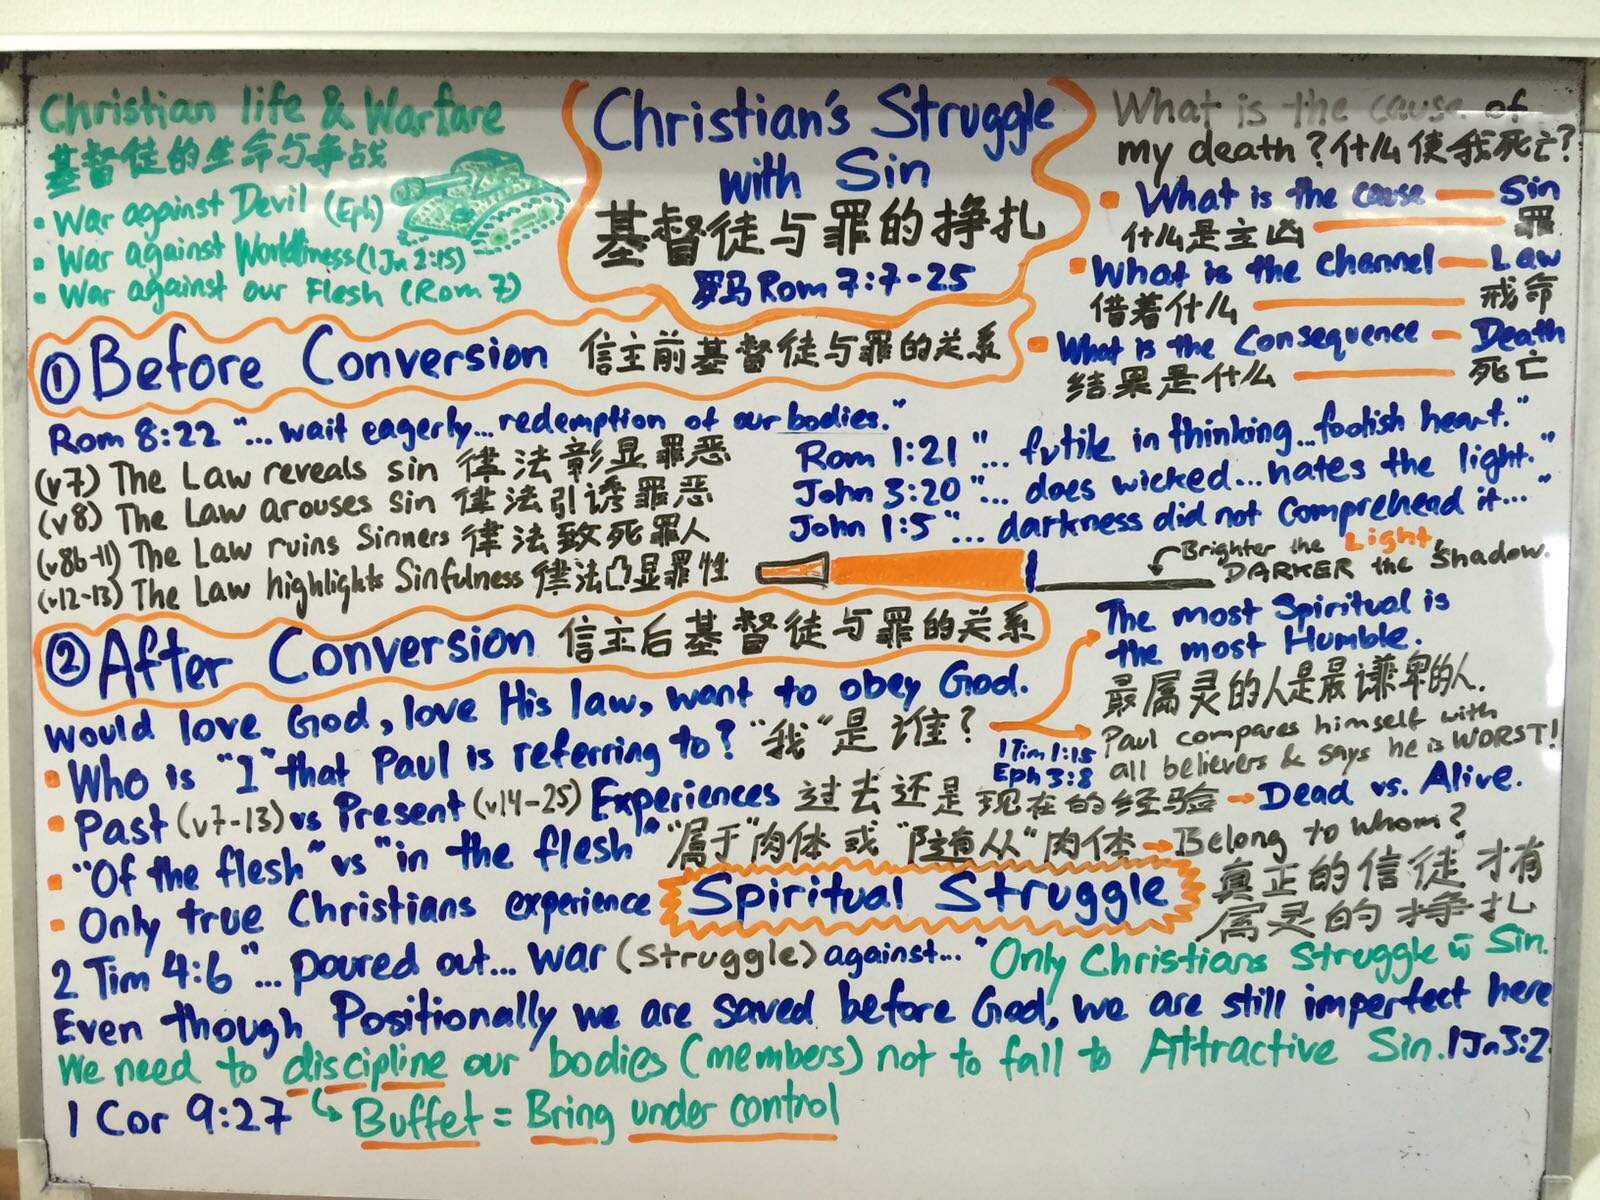 Christian life & Warfare
基督徒的生命与争战
• War against Devil (Eph)
• War against Worldliness (1 Jn 2:15)
• War against our Flesh (Rom 7)
Christian's Struggle
with Sin
基督徒与罪的挣扎
罗马 Rom 7:7-25
What is the cause of
my death? 什么使我死亡?
• What is the cause — Sin
什么是主凶 — 罪
• What is the channel — Law
借着什么 — 戒命
• What is the Consequence — Death
结果是什么 — 死亡
① Before Conversion 信主前基督徒与罪的关系
Rom 8:22 "... wait eagerly... redemption of our bodies."
(v7) The Law reveals sin 律法彰显罪恶
(v8) The Law arouses sin 律法引诱罪恶
(v8b-11) The Law ruins Sinners 律法致死罪人
(v12-13) The Law highlights Sinfulness 律法凸显罪性
Rom 1:21 "... futile in thinking... foolish heart."
John 3:20 "... does wicked... hates the light."
John 1:5 "... darkness did not Comprehead it..."
Brighter the Light,
DARKER the Shadow.
② After Conversion 信主后基督徒与罪的关系
Would love God, love His law, want to obey God.
• Who is "I" that Paul is referring to? "我"是谁?
The most Spiritual is
the most Humble.
最属灵的人是最谦卑的人.
1 Tim 1:15
Eph 3:8
Paul compares himself with
all believers & says he is WORST!
• Past (v7-13) vs Present (v14-25) Experiences 过去还是现在的经验 → Dead vs. Alive.
• "Of the flesh" vs "in the flesh" "属于"肉体 或 "随从"肉体 → Belong to whom?
• Only true Christians experience Spiritual Struggle
真正的信徒才有
属灵的挣扎
2 Tim 4:6 "... poured out... war (struggle) against..." Only Christians Struggle w̄ Sin.
Even though Positionally we are saved before God, we are still imperfect here
1 Jn 3:2
We need to discipline our bodies (members) not to fall to Attractive Sin.
1 Cor 9:27 ↳ Buffet = Bring under control